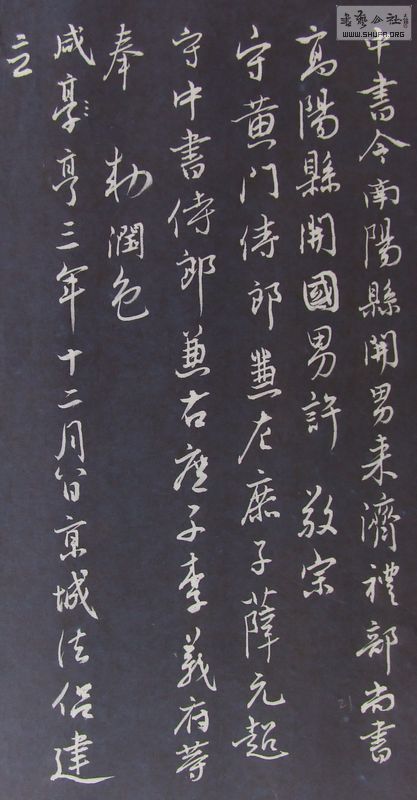 書藝公社
WWW.SHUFA.ORG
中書令南陽縣開男来濟禮部尚書
高陽縣開國男許 敬宗
守黄門侍郎兼左庶子薛元超
守中書侍郎兼右庶子李義府等
奉 勅潤色
咸亨三年十二月八日京城法侶建
立